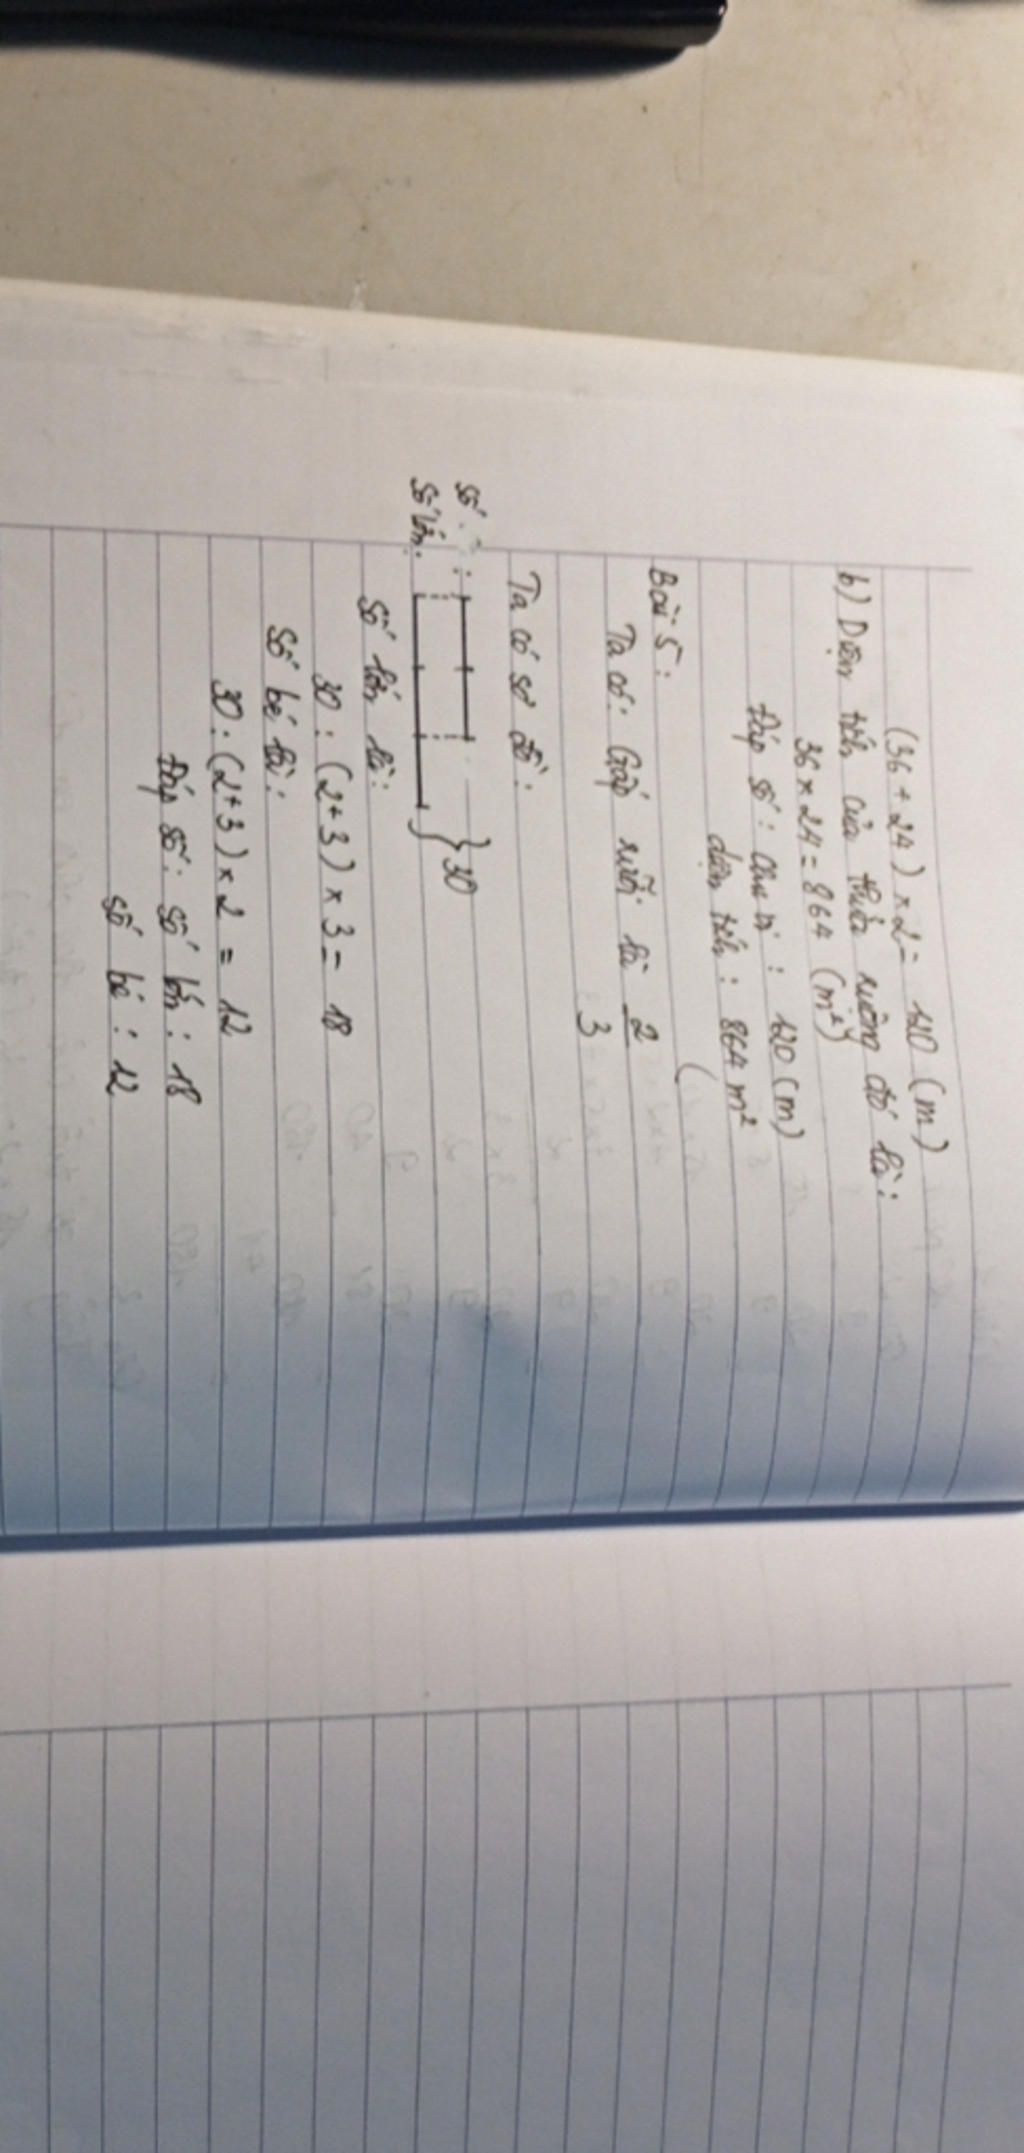 (36 + 24) × 2 = 120 (m)
b) Diện tích của thửa ruộng đó là:
36 × 24 = 864 (m²)
Đáp số: chu vi: 120 (m)
diện tích: 864 m²
Bài 5:
Ta có: Gấp rưỡi là 2/3
Ta có sơ đồ:
số :
số lớn:
} 30
Số lớn là:
30 : (2+3) × 3 = 18
Số bé là:
30 : (2+3) × 2 = 12
Đáp số: số lớn: 18
số bé: 12